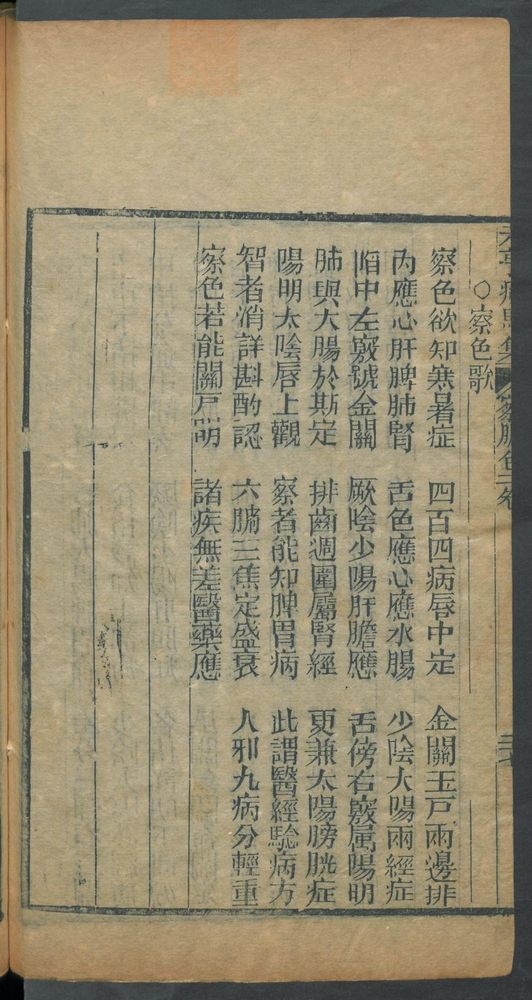 元亨療馬集 察脈色一卷
○察色歌
察色欲知寒暑症 四百四病唇中定 金關玉戸兩邊排
內應心肝脾肺腎 舌色應心應水腸 少陰大陽兩經症
牀中左竅號金關 厥陰少陽肝膽應 舌傍右竅属陽明
肺與大腸於斯定 排齒週圍屬腎經 更兼太陽膀胱症
陽明太陰唇上觀 察者能知脾胃病 此謂醫經騐病方
智者消詳斟酌認 六腑三焦定盛衰 八邪九病分輕重
察色若能關戸明 諸疾無差醫藥應